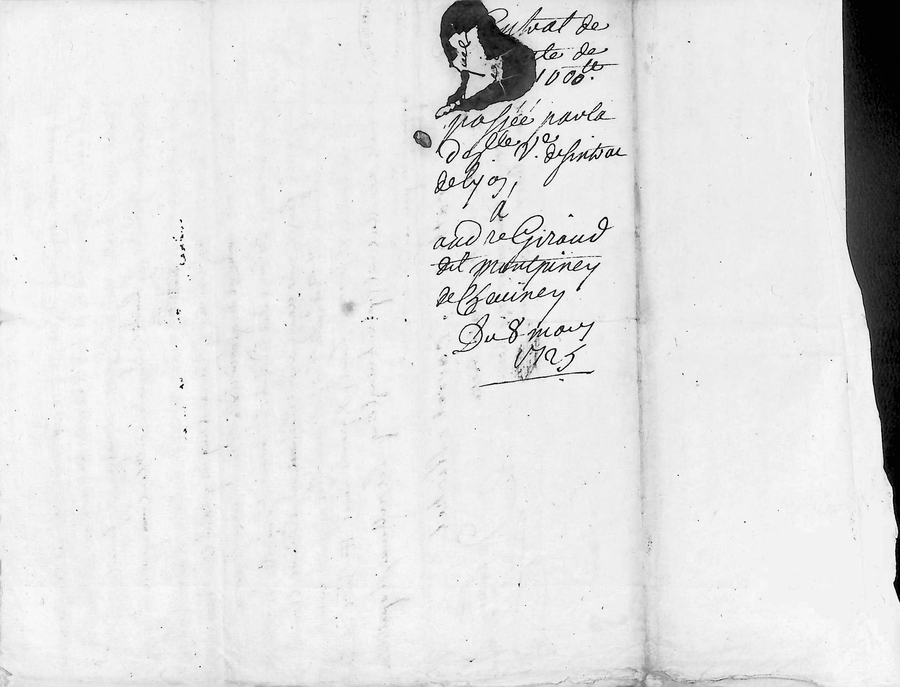 Contrat de
te de
1000tt.
passée par la
Dslle Ve
a
andre Giraud
dit montpiney
de Chauiney
Du 8 mars
1725